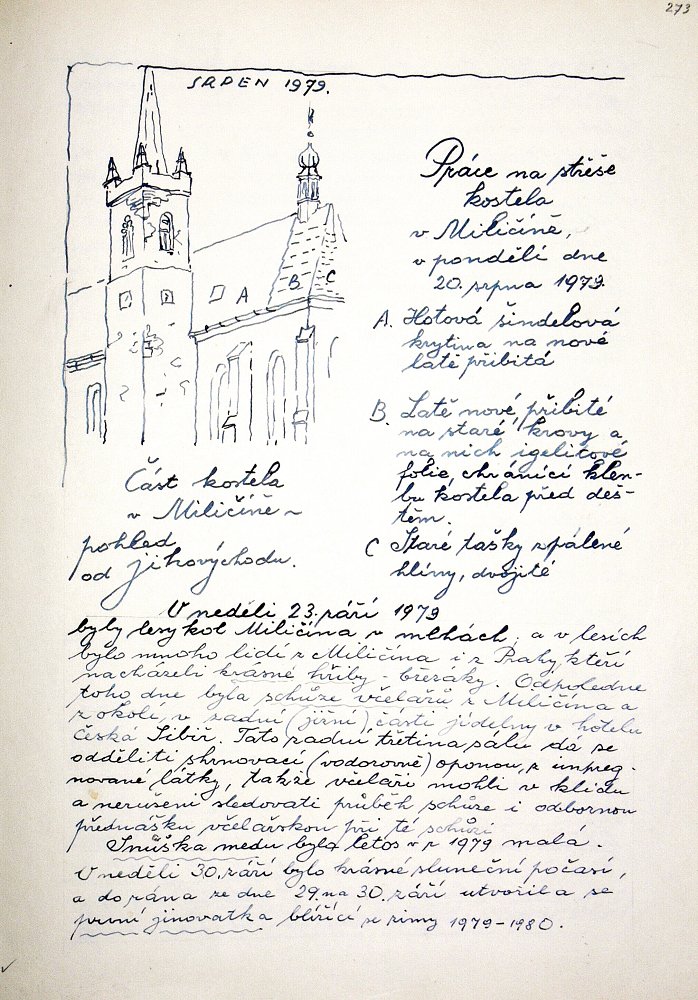 273
SRPEN 1979.
A
B
C
Práce na střeše
kostela
v Miličíně,
v pondělí dne
20. srpna 1979.
A. Hotová šindelová
krytina na nové
latě přibitá
B. Latě nové, přibité
na staré krovy a
na nich igelitové
folie, chránící klen-
bu kostela před deš-
těm.
C Staré tašky z pálené
hlíny, dvojité
Část kostela
v Miličíně ~
pohled
od jihovýchodu.
V neděli 23. září 1979
byly lesy kol Miličína v mlhách, a v lesích
bylo mnoho lidí z Miličína i z Prahy, kteří
nacházeli krásné hřiby - březáky. Odpoledne
toho dne byla schůze včelařů z Miličína a
z okolí, v zadní (jižní) části jídelny v hotelu
Česká Sibiř. Tato zadní třetina sálu dá se
odděliti shrnovací (vodorovně) oponou, z impreg-
nované látky, takže včelaři mohli v klidu
a nerušeni sledovati průběh schůze i odbornou
přednášku včelařskou při té schůzi
Snůška medu byla letos v r 1979 malá.
V neděli 30. září bylo krásné sluneční počasí,
a do rána ze dne 29. na 30. září utvořila se
první jinovatka blížící se zimy 1979-1980.